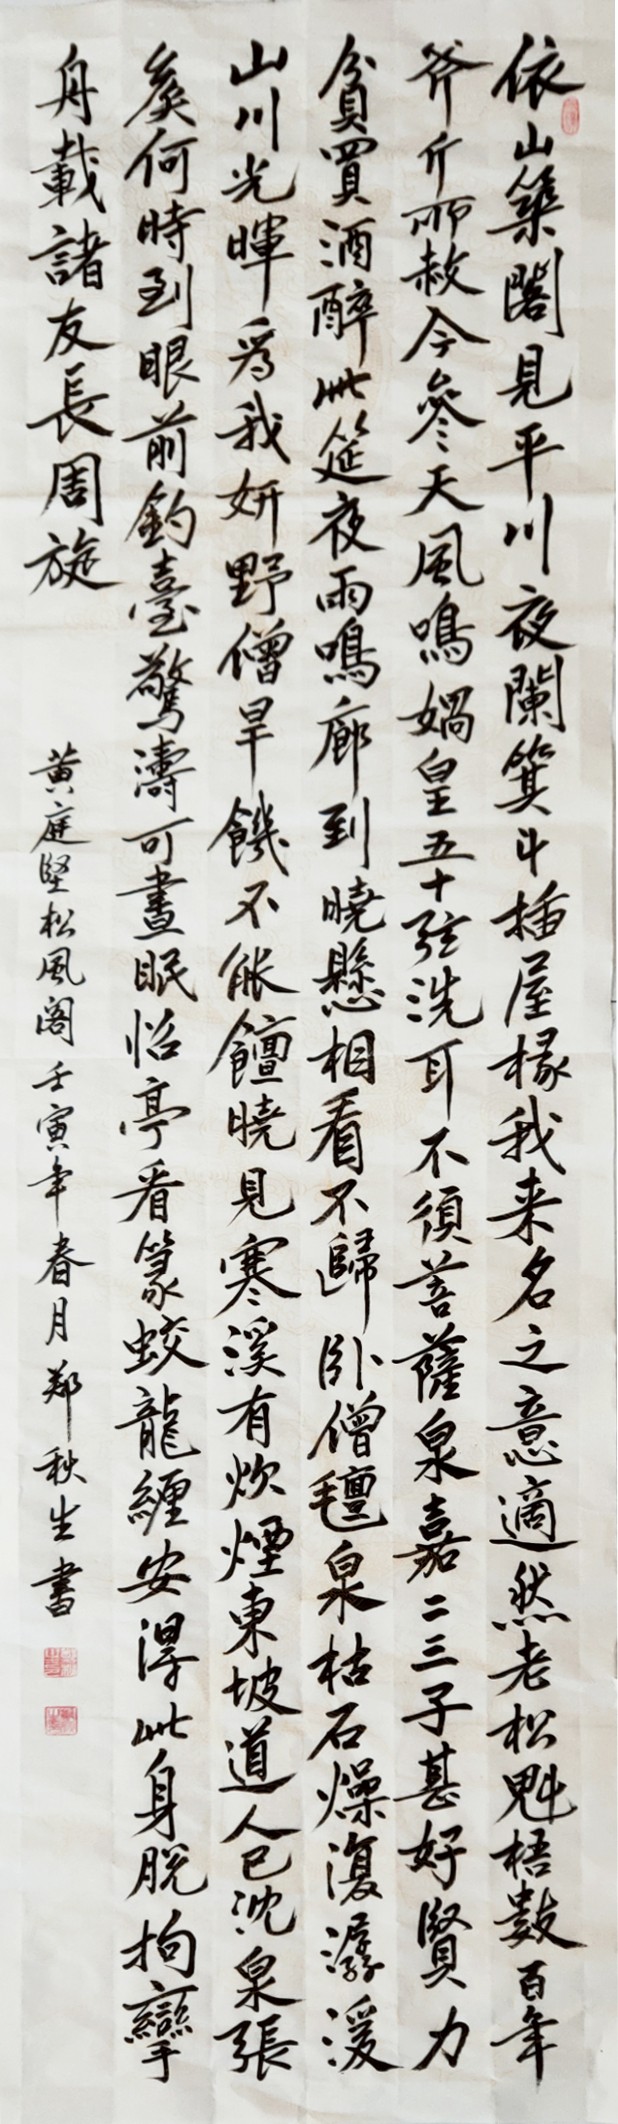 依山築閣見平川夜闌箕斗插屋椽我来名之意適然老松魁梧數百年
斧斤所赦今參天風鳴媧皇五十弦洗耳不須菩薩泉嘉二三子甚好賢力
貧買酒醉此筵夜雨鳴廊到曉懸相看不歸卧僧氈泉枯石燥復潺湲
山川光暉為我妍野僧旱饑不能饘曉見寒溪有炊煙東坡道人已沈泉張
矦何時到眼前釣臺驚濤可晝眠怡亭看篆蛟龍纏安得此身脫拘攣
舟載諸友長周旋
黄庭堅松風阁壬寅年春月郑秋生書